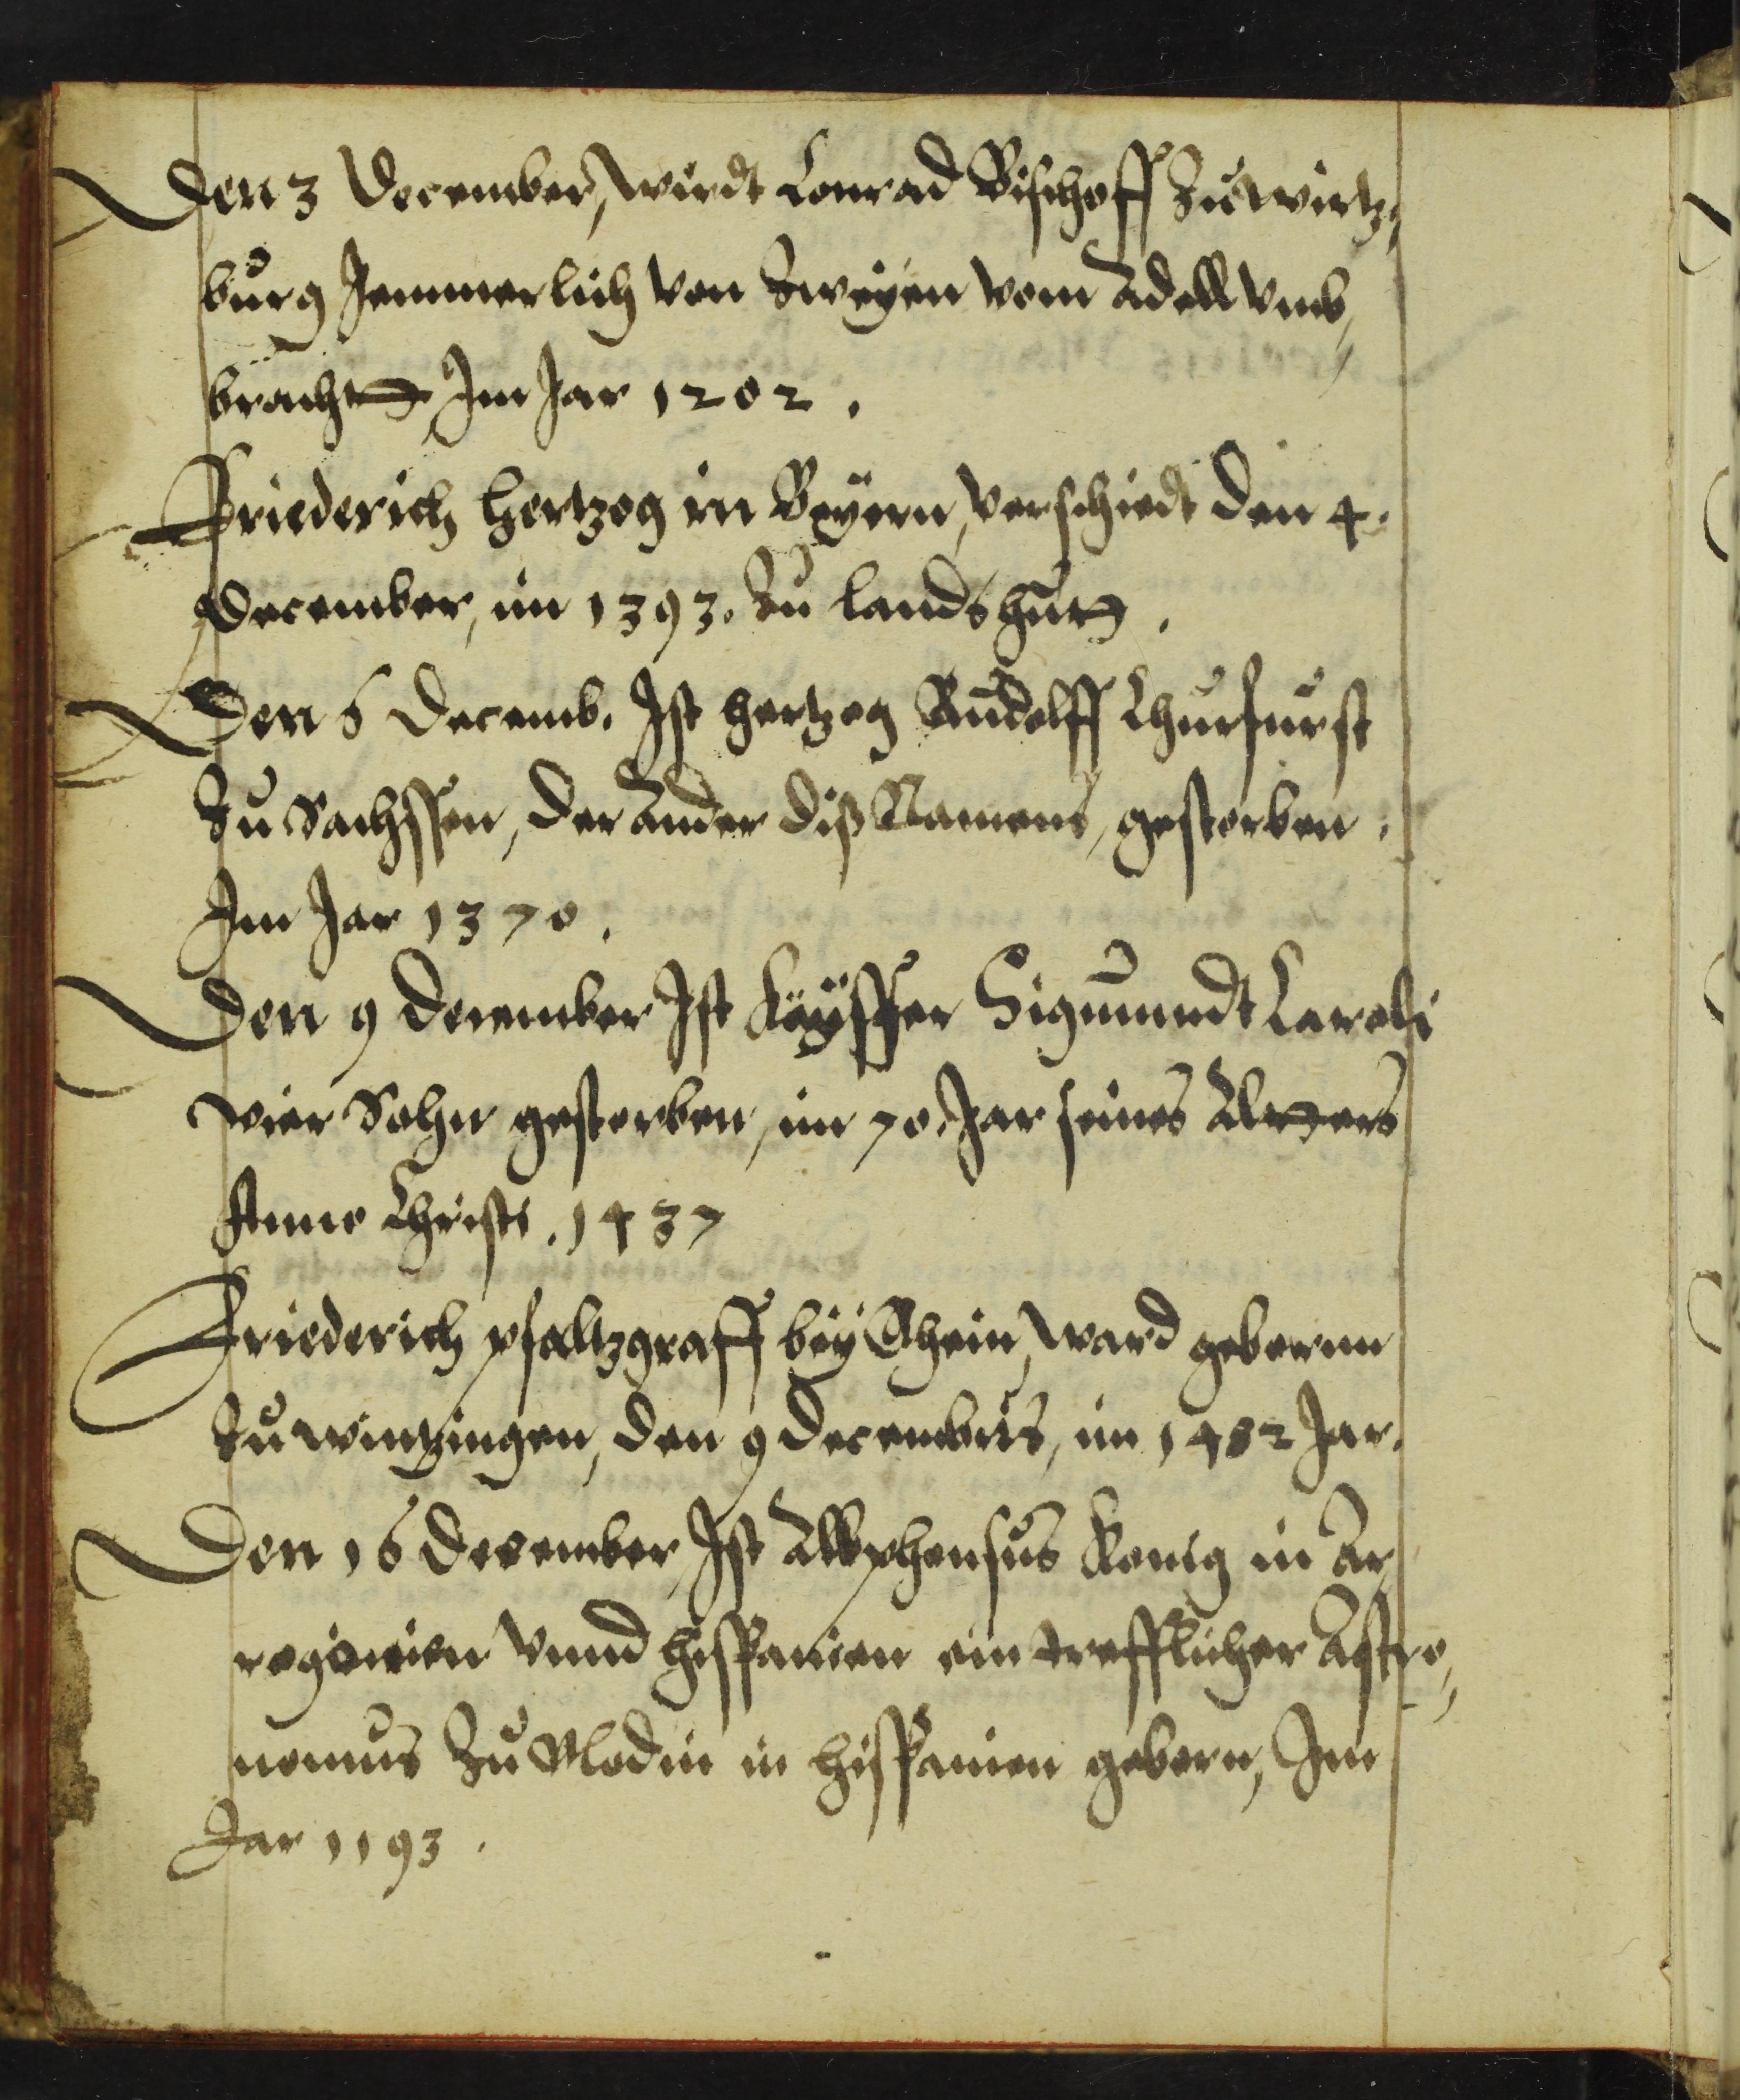 Den 3 December, wirdt Conrad Bischoff zu Wirtz,
burg Jemmerlich von Zweyen vom Adell vmb,
bracht Im Jar 1202.
Friederich Hertzog in Beyern, verschiedt den 4.
December, im 1393. zu Landshutt.
Den 6 Decemb. Ist Hertzog Rudolff Churfurst
zu Sachssen, der Ander diß Namens, gestorben.
Im Jar 1370.
Den 9 December Ist Kaÿsser Sigmundt Caroli
vier Sohn gestorben, im 70. Jar seines Alters
Anno Christi. 1437
Friederich pfaltzgraff beÿ Rhein, ward geborenn
zu Wintzingen, den 9 Decembris, im 1482 Jar.
Den 16 December, Ist Allphonsus Konig in Ar,
ragonien vnnd Hispanien ein trefflicher Astro,
nomus zu in Hispanien geborn, Im
Jar 1193.